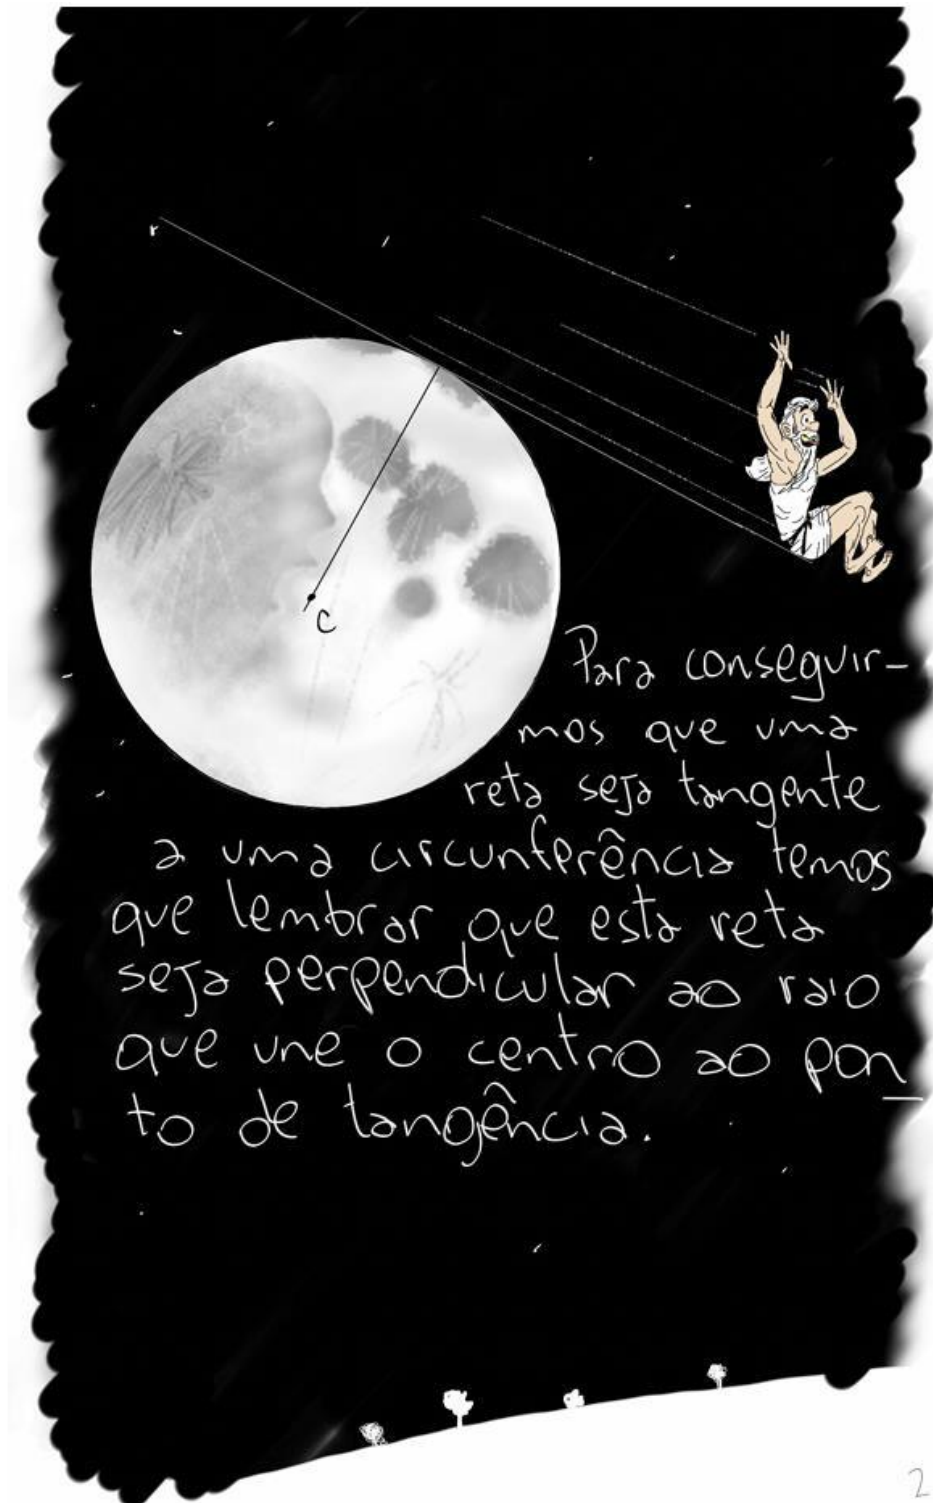 r
C
Para conseguir-
mos que uma
reta seja tangente
a uma circunferência temos
que lembrar que esta reta
seja perpendicular ao raio
que une o centro ao pon
to de tangência.
2